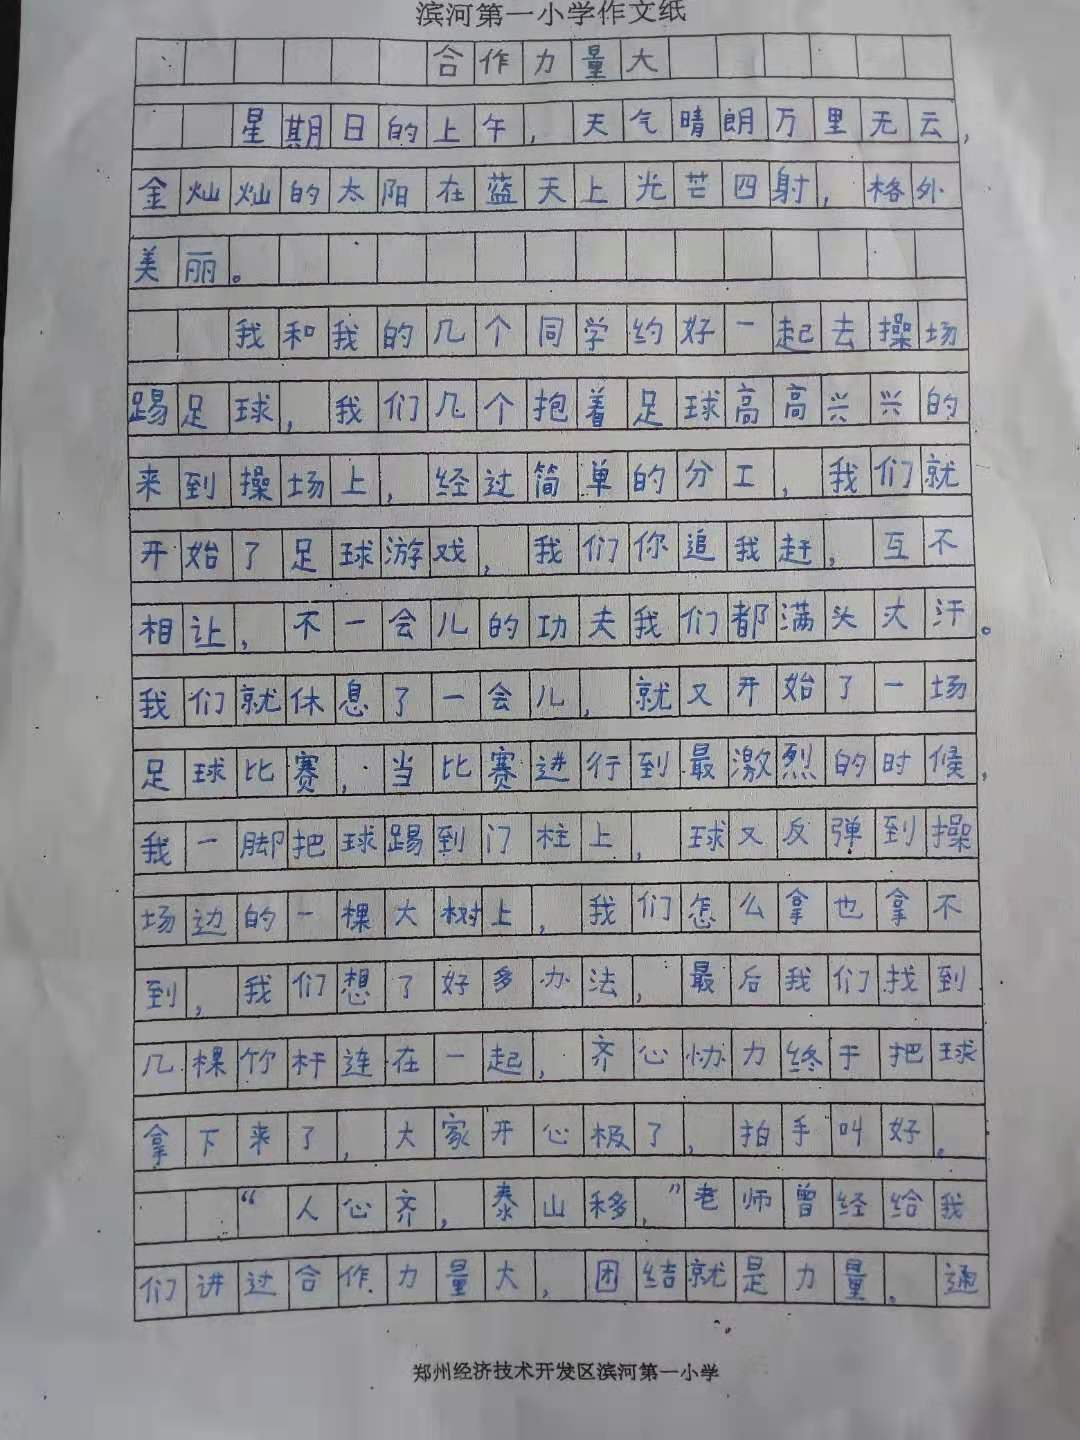 滨河第一小学作文纸
合作力量大
星期日的上午，天气晴朗万里无云，
金灿灿的太阳在蓝天上光芒四射，格外
美丽。
我和我的几个同学约好一起去操场
踢足球，我们几个抱着足球高高兴兴的
来到操场上，经过简单的分工，我们就
开始了足球游戏，我们你追我赶，互不
相让，不一会儿的功夫我们都满头大汗。
我们就休息了一会儿，就又开始了一场
足球比赛，当比赛进行到最激烈的时候，
我一脚把球踢到门柱上，球又反弹到操
场边的一棵大树上，我们怎么拿也拿不
到，我们想了好多办法，最后我们找到
几棵竹杆连在一起，齐心协力终于把球
拿下来了，大家开心极了，拍手叫好。
“人心齐，泰山移，”老师曾经给我
们讲过合作力量大，团结就是力量。通
郑州经济技术开发区滨河第一小学